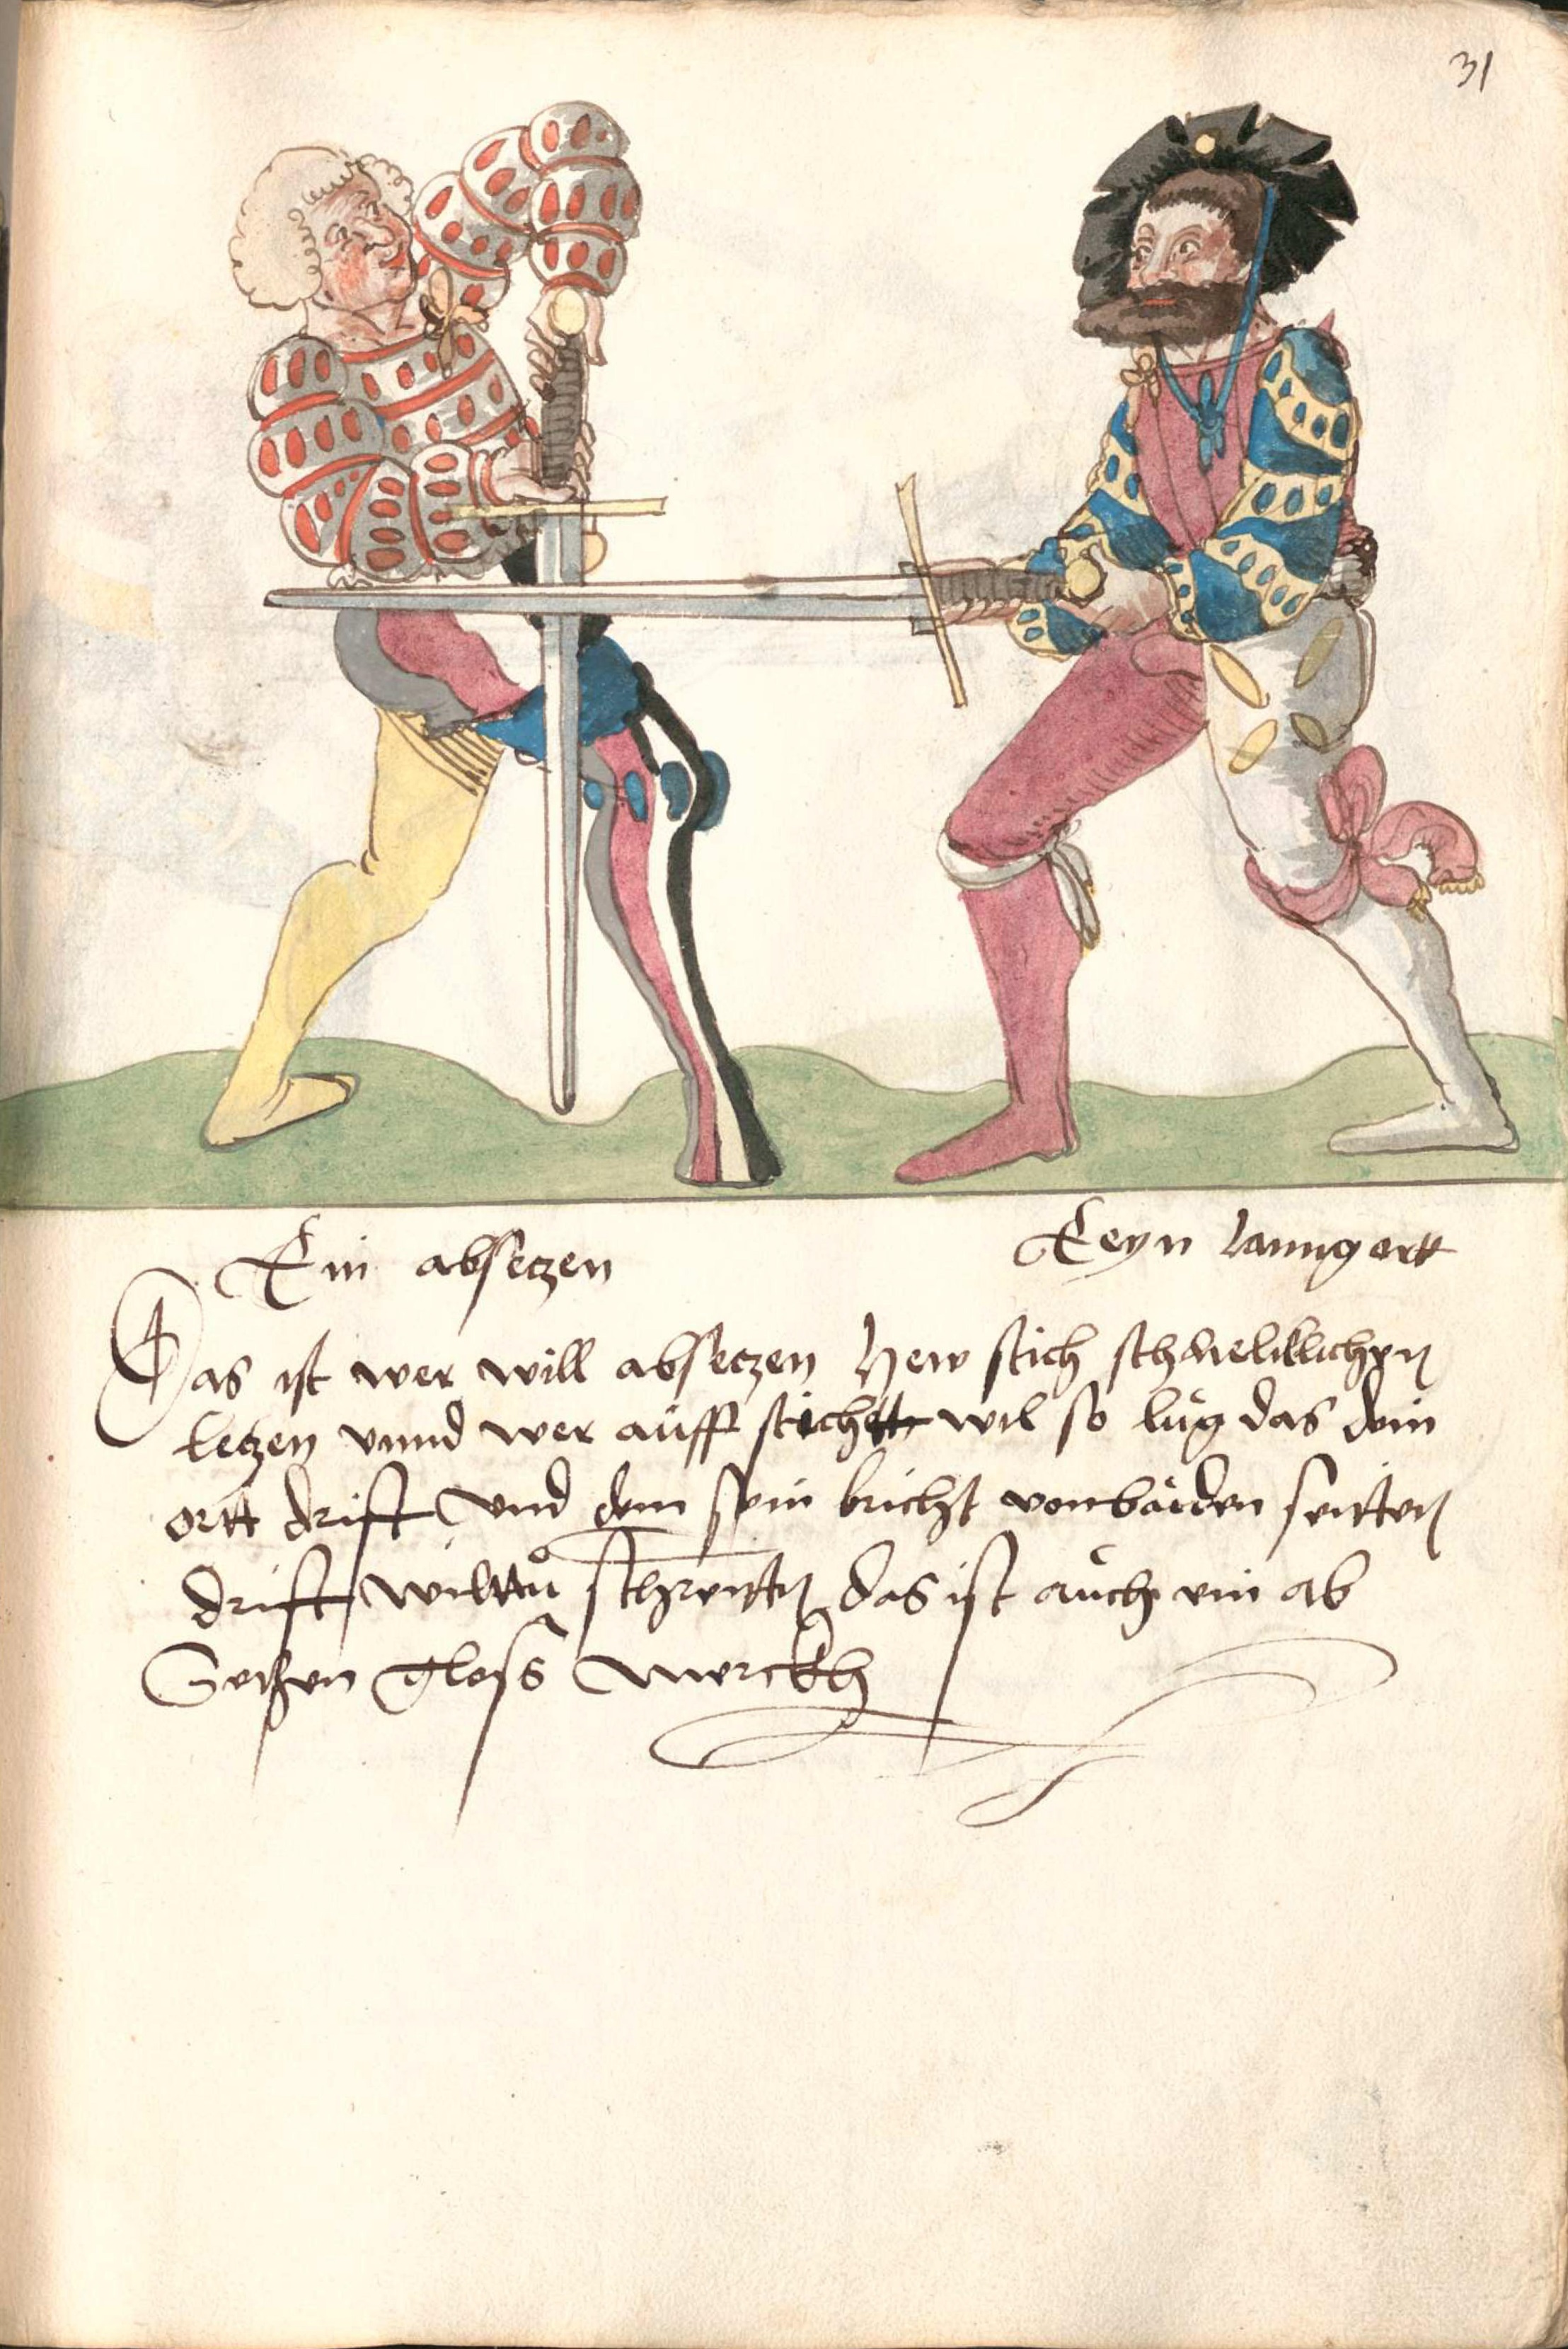 31
Ein absetzen
Eeyn lanngortt
Das ist wer will absetzen hew stich
letzen vnnd wer auff stichett wil so lůg das dein
ortt drift vnd dem sein bricht von baiden seitten
drift wilttů schreitten das ist auch ein ab
Setzen glosß Merckh